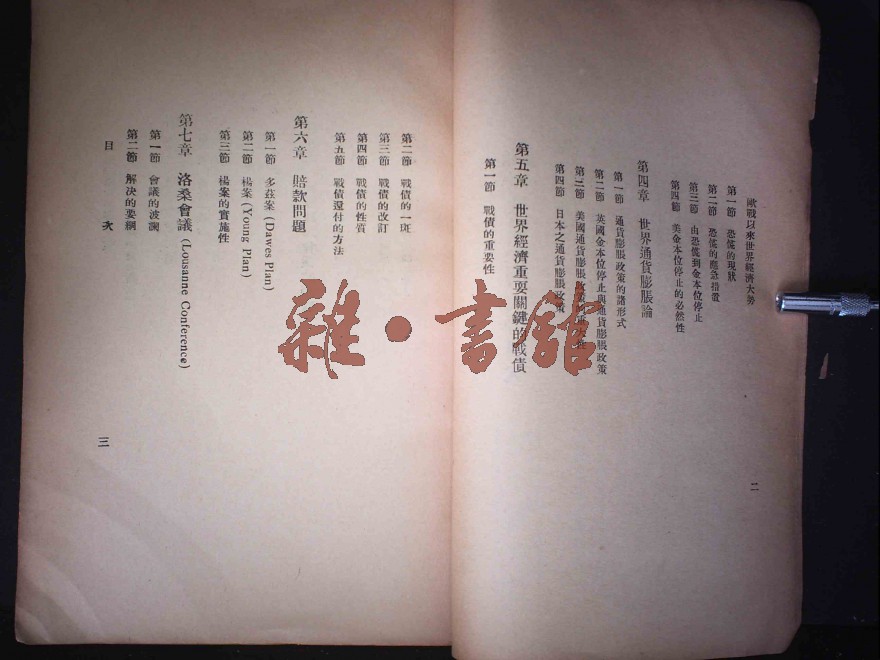 歐戰以來世界經濟大勢
第一節 恐慌的現狀
第二節 恐慌的應急措置
第三節 由恐慌到金本位停止
第四節 美金本位停止的必然性
第四章 世界通貨膨脹論
第一節 通貨膨脹政策的諸形式
第二節 英國金本位停止與通貨膨脹政策
第三節 美國通貨膨脹政策的重大性
第四節 日本之通貨膨脹政策
第五章 世界經濟重要關鍵的戰債
第一節 戰債的重要性
二
第二節 戰債的一斑
第三節 戰債的改訂
第四節 戰債的性質
第五節 戰債還付的方法
第六章 賠款問題
第一節 多茲案 (Dawes Plan)
第二節 楊案 (Young Plan)
第三節 楊案的實施性
第七章 洛桑會議 (Lousanne Conference)
第一節 會議的波瀾
第二節 解決的要綱
目 次
三
雜·書館